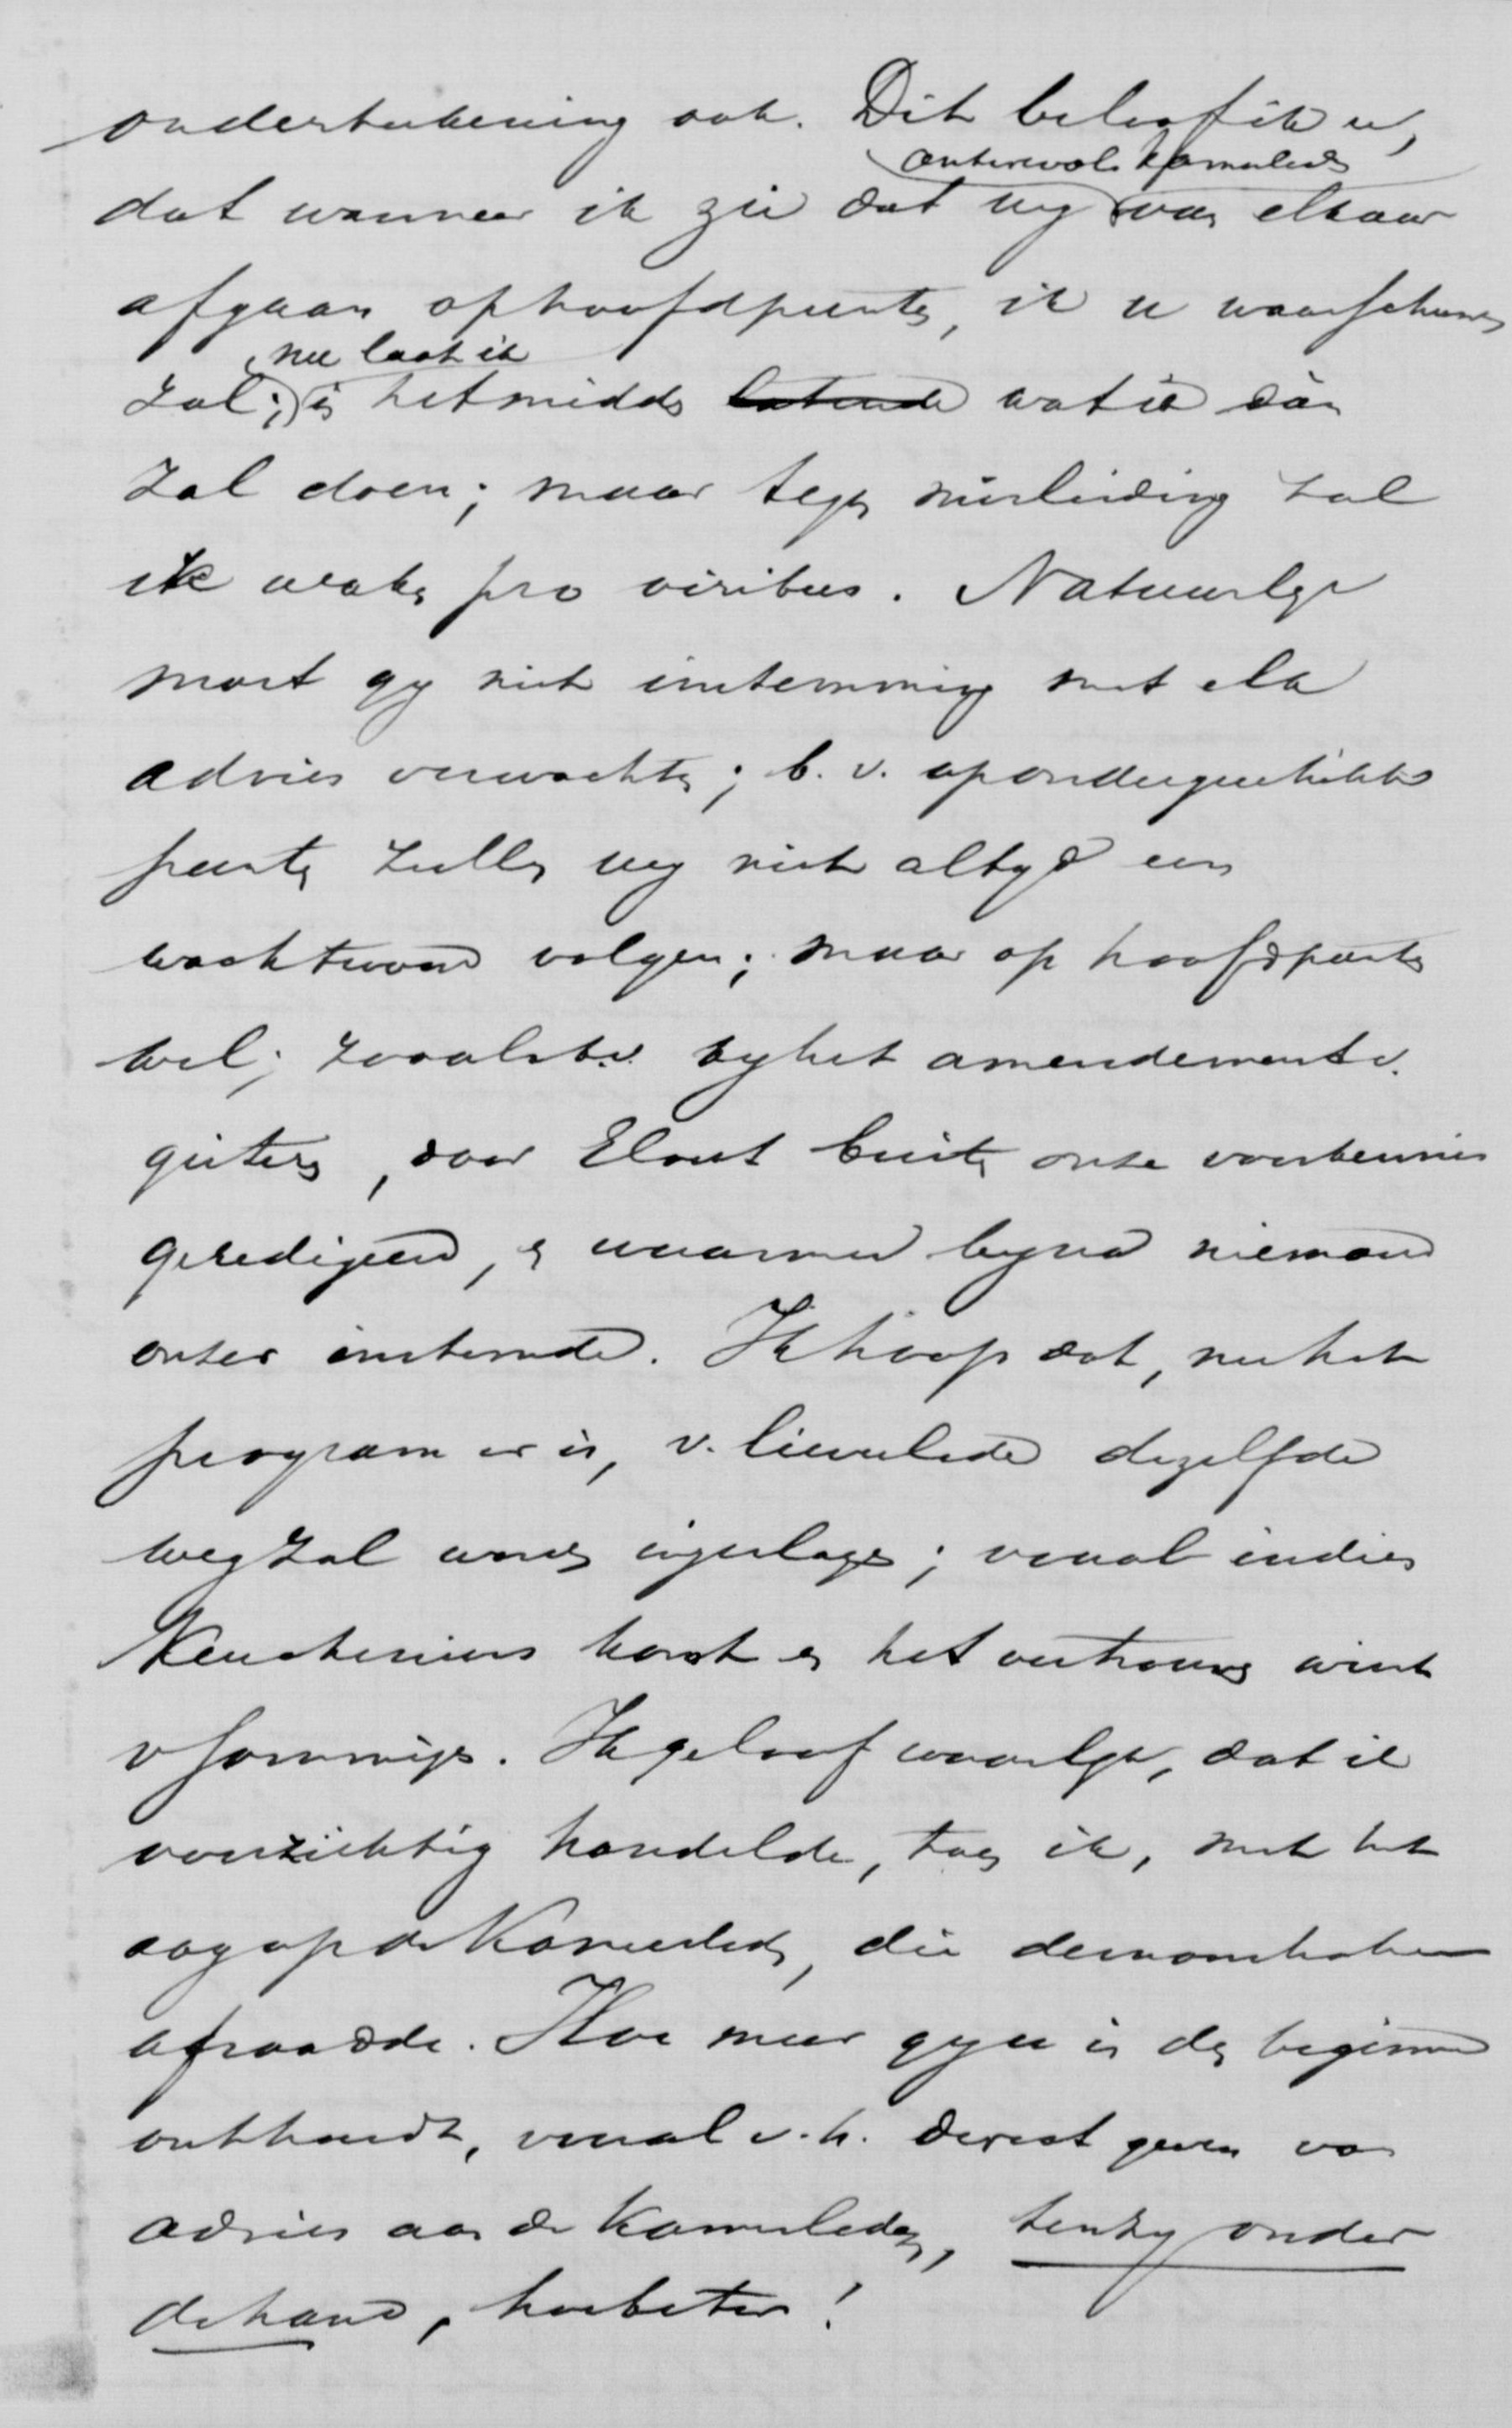 onderteekening ook. Dit beloof ik u,
antirevol. Kamerleden
dat wanneer ik zie dat wy van elkaar
afgaan op hoofdpunten, ik u waarschuwen
nu laat ik
zal; in het midden latende wat ik dàn
zal doen; maar tegen misleiding zal
ik waken pro viribus. Natuurlyk
moet gy niet instemming met elk
advies verwachten; b.v. op ondergeschikte
punten zullen wy niet altyd een
wachtwoord volgen; maar op hoofdpunten
wel; zooals b.v. by het amendement v.
gisteren, door Elout buiten onze voorkennis
geredigeerd, en waarmed byna niemand
onzer instemde. Ik hoop dat, nu het
program er is, v. lieverlede dezelfde
weg zal worden ingeslagen; vooral indien
Keuchenius komt en het vertrouwen wint
v sommigen. Ik geloof waarlyk, dat ik
voorzichtig handelde, toen ik, met het
oog op de Kamerleden, die demonstratie
afraadde. Hoe meer gy u in den beginne
onthoudt, vooral v. h. direct geven van
advies aan de Kamerleden, tenzy onder
de hand, hoe beter!